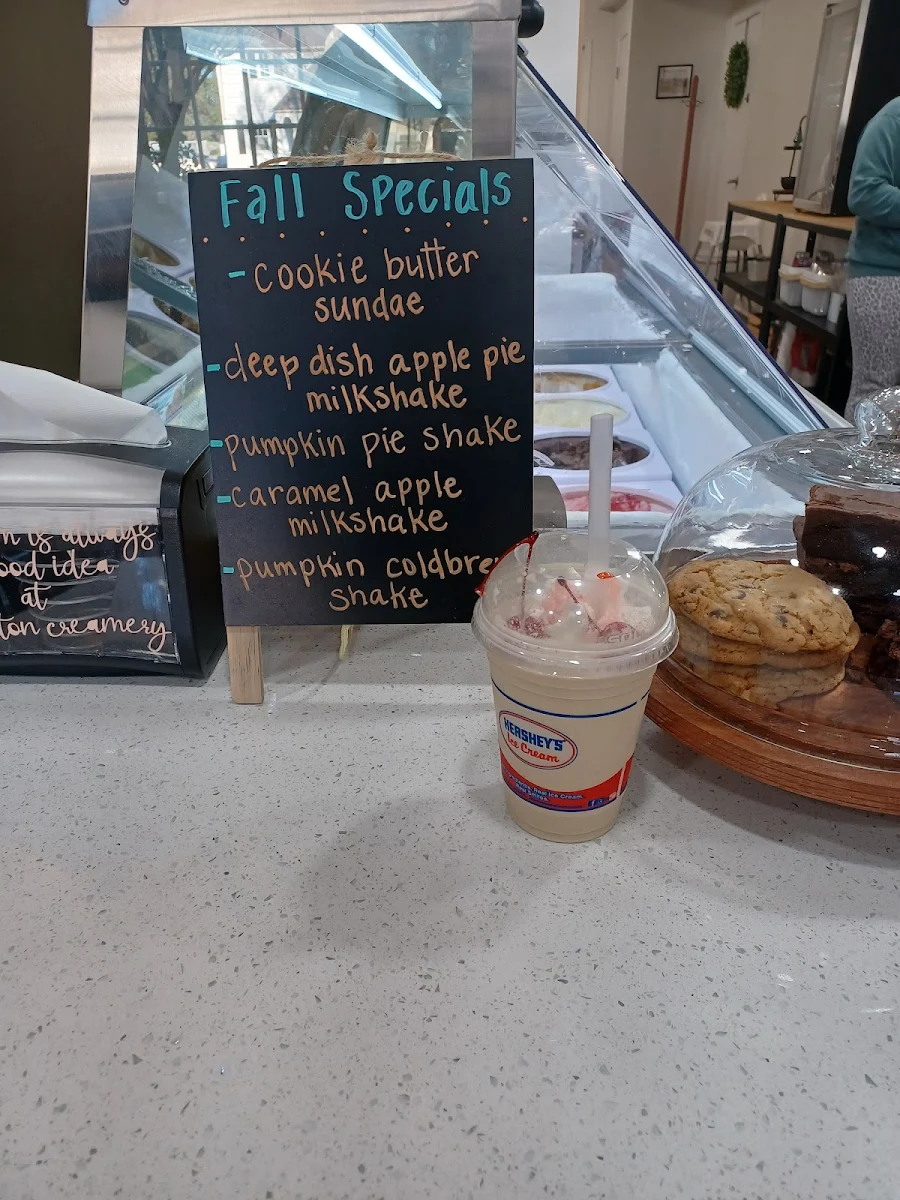 Fall Specials
- Cookie butter
sundae
- deep dish apple pie
milkshake
- pumpkin pie shake
- caramel apple
milkshake
- pumpkin coldbre
shake
is always
ood idea
at
ton creamery
HERSHEY'S
Ice Cream
Real Ice Cream